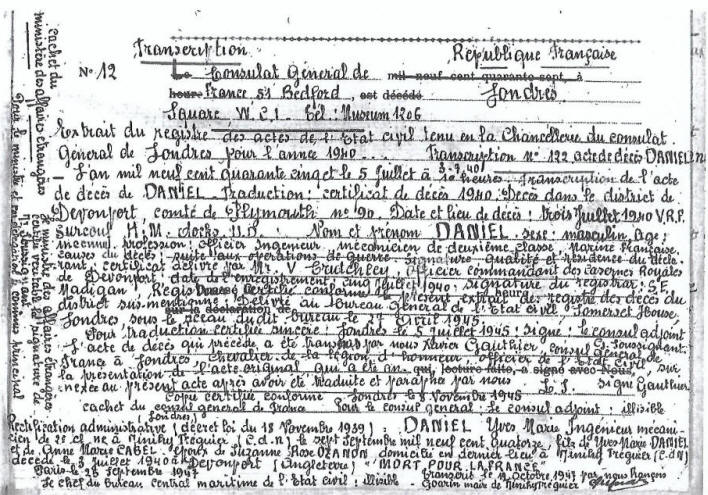 Transcription
République Française
N° 12
Le Consulat Général de mil neuf cent quarante sept, à
heure France 51 Bedford est décédé Londres
Square, W.C.1. Tél: Museum 1206
Extrait du registre des actes de l'Etat civil tenu en la Chancellerie du consulat
Général de Londres pour l'année 1940 Transcription n° 122 acte de décès DANIEL
L'an mil neuf cent quarante cinq et le 5 Juillet à 10 heures Transcription de l'acte
de décès de DANIEL Traduction: certificat de décès 1940. Décès dans le district de
Devonport, comté de Plymouth n° 90. Date et lieu de décès: trois Juillet 1940 V.R.F.
Surcouf H.M. docks Nom et prénom DANIEL. sexe: masculin Age:
inconnu, profession: officier Ingénieur mécanicien de deuxième classe, Marine Française.
causes du décès: suite aux opérations de guerre. Signature, qualité et résidence du décla-
rant: certificat délivré par Mr. V officier commandant des casernes Royales
de Devonport, date de l'enregistrement: cinq Juillet 1940; signature du registrar: S.E.
Madigan. certifié conforme le présent extrait des registre des décès du
district sus-mentionné: Délivré au bureau Général de l'Etat civil Somerset House
Londres sous sceau dudit bureau le 27 avril 1945
Pour traduction certifiée sincère: Londres le 5 Juillet 1945; signé: le consul adjoint
L'acte de décès qui précède a été transcrit par nous Xavier Gauthier consul général de
France à Londres Chevalier de la légion d'honneur, officier de l'Etat Civil sur
la présentation de l'acte original qui a été an- qui, lecture faite, a signé avec Nous,
nexée au présent acte après avoir été traduite et paraphé par nous L.S. signé Gauthier
Copie certifiée conforme Londres le 8 Novembre 1945
cachet du consul général de France Pour le consul général: le consul adjoint: illisible
Londres
Rectification administrative (décret loi du 18 Novembre 1939): DANIEL Yves Marie Ingénieur mécani-
cien de 2e cl. né à Minihy Tréguier (C.d.n) le sept Septembre mil neuf cent quatorze, fils de Yves Marie DANIEL
et de Anne Marie CABEL. époux de Suzanne Rose OZANON domicilié en dernier lieu à Minihy Tréguier (C.d.N)
décédé le 3 juillet 1940 à Devonport (Angleterre) "MORT POUR LA FRANCE"
Paris le 26 Septembre 1947 Transcrit le 14 Octobre 1947 par nous François
Le chef du bureau central maritime de l'Etat civil: illisible Goarin maire de Minihy Tréguier
cachet du
ministère des affaires étrangères
Pour le ministre et par délégation le commis principal
Le ministre des affaires étrangères
certifie véritable la signature de